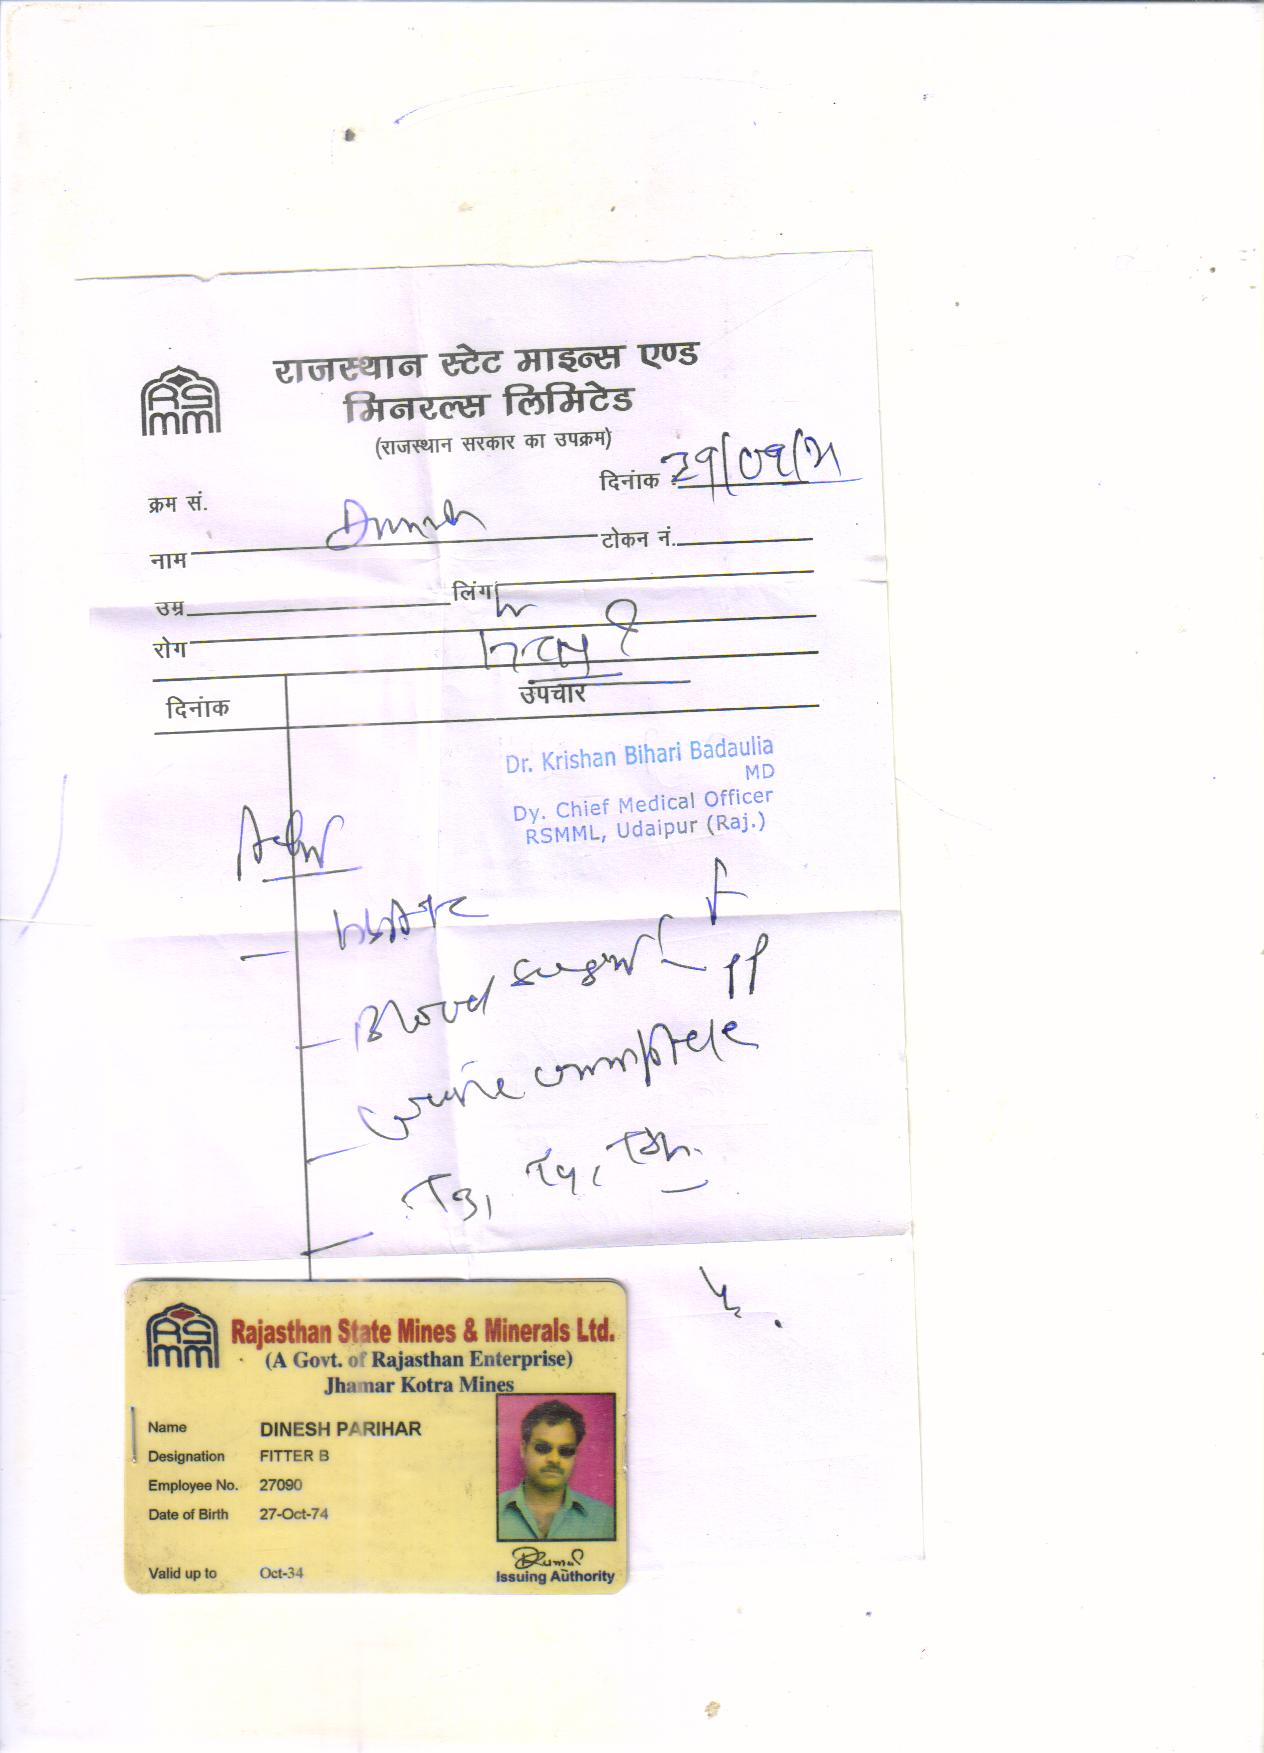 राजस्थान स्टेट माइन्स एण्ड
मिनरल्स लिमिटेड
RS
mm
(राजस्थान सरकार का उपक्रम)
दिनांक
क्रम सं.
नाम Dinesh टोकन नं.
उम्र लिंग
रोग
दिनांक उपचार
Dr. Krishan Bihari Badaulia
MD
Dy. Chief Medical Officer
RSMML, Udaipur (Raj.)
Adv
Blood sugar F
PP
urine complete
T3, T4, TSH
RS
mm
Rajasthan State Mines & Minerals Ltd.
(A Govt. of Rajasthan Enterprise)
Jhamar Kotra Mines
Name DINESH PARIHAR
Designation FITTER B
Employee No. 27090
Date of Birth 27-Oct-74
Valid up to Oct-34
Issuing Authority